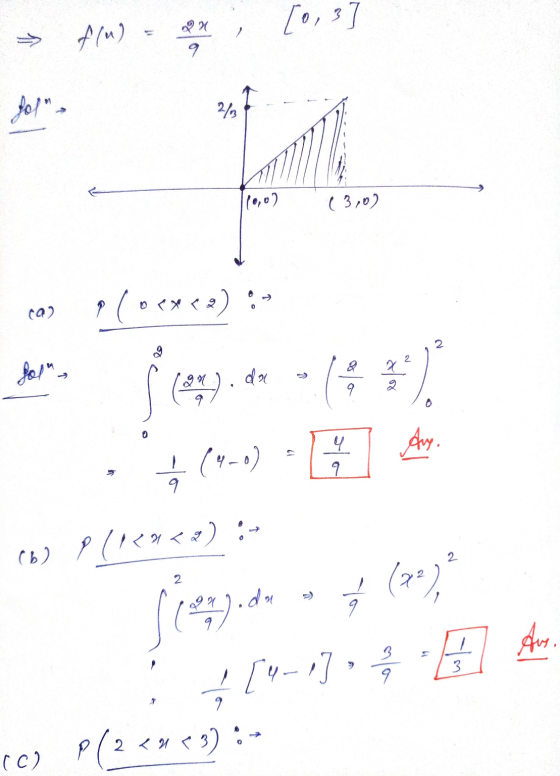 ⇒ f(x) = 2x/9 , [0, 3]
Solⁿ →
2/3
(0,0) (3,0)
(a) P(0<x<2) :→
Solⁿ → ∫₀² (2x/9) . dx ⇒ (2/9 x²/2)₀²
= 1/9 (4-0) = 4/9 Ans.
(b) P(1<x<2) :→
∫₁² (2x/9) . dx ⇒ 1/9 (x²)₁²
= 1/9 [4-1] = 3/9 = 1/3 Ans.
(c) P(2<x<3) :→